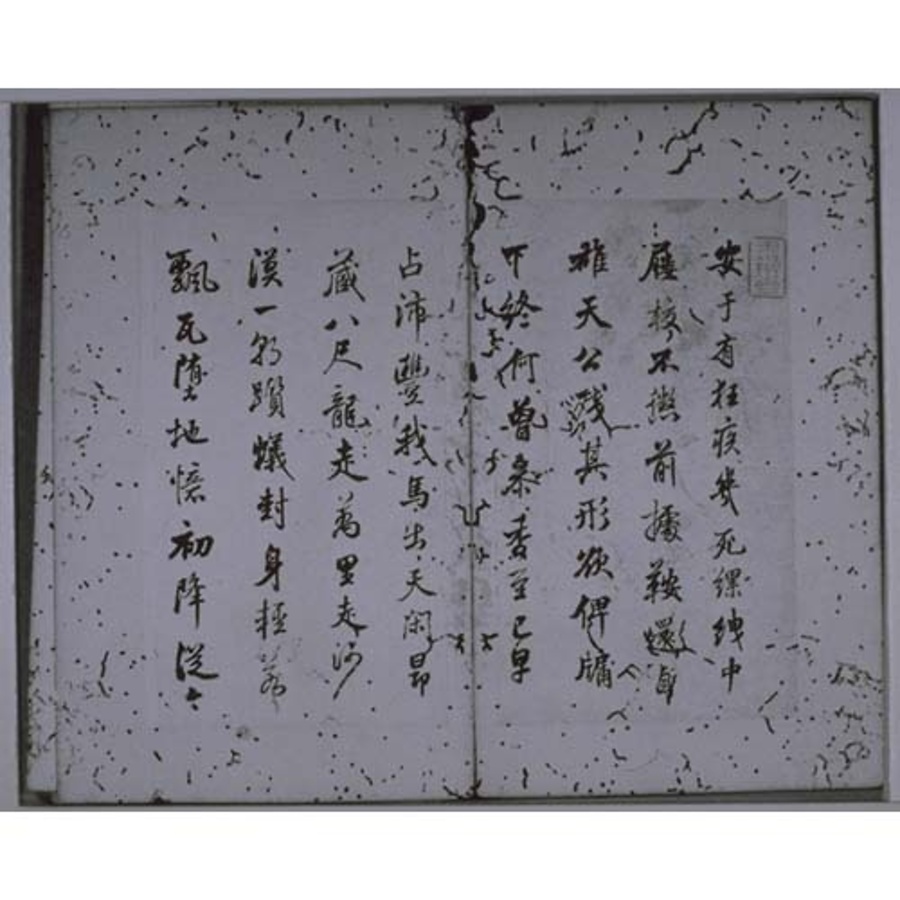 安于有狂疾幾死縲絏中
履校不懲前據鞍還自
雄天公戲其形欲俾牖
下終何曾委至已早
占沛豐我馬出天閑昂
藏八尺龍走萬里走沙
漠一朝躓蟻封身輕若
飄瓦墮地憶初降從今